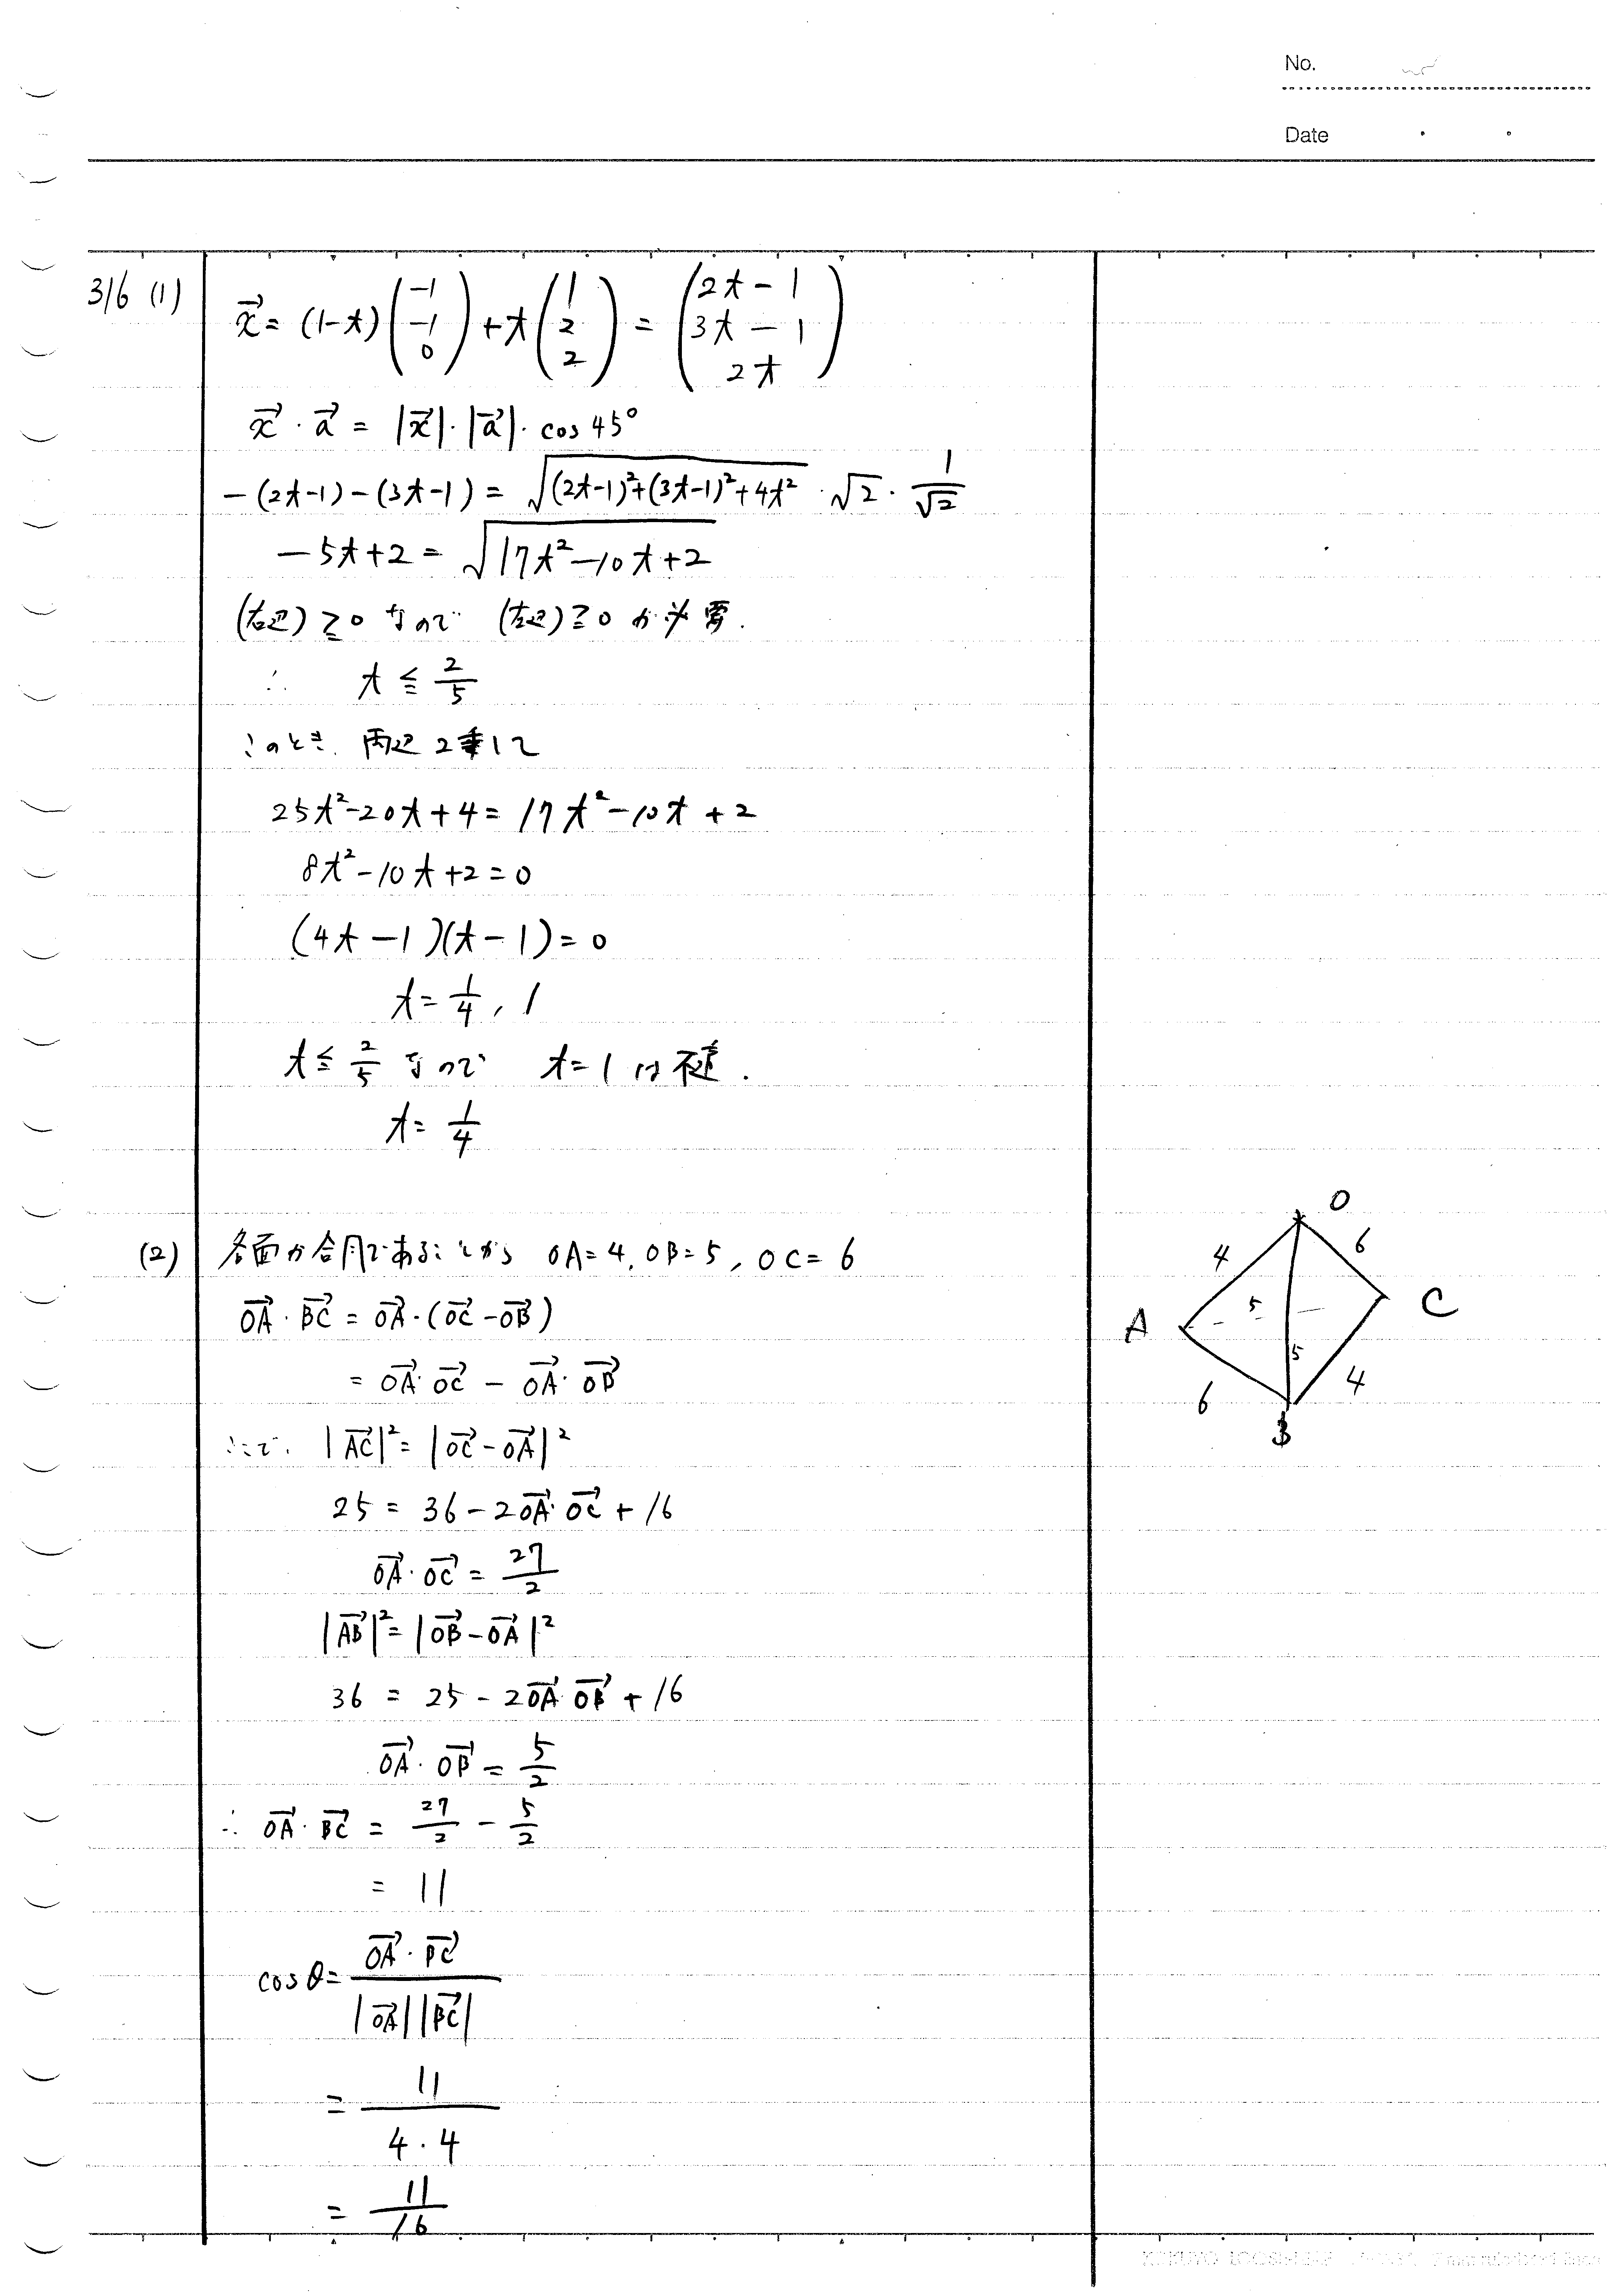 No.
Date
316 (1)
$\vec{x} = (1-t)\begin{pmatrix} -1 \\ -1 \\ 0 \end{pmatrix} + t\begin{pmatrix} 1 \\ 2 \\ 2 \end{pmatrix} = \begin{pmatrix} 2t-1 \\ 3t-1 \\ 2t \end{pmatrix}$
$\vec{x} \cdot \vec{a} = |\vec{x}| \cdot |\vec{a}| \cdot \cos 45°$
$-(2t-1)-(3t-1) = \sqrt{(2t-1)^2+(3t-1)^2+4t^2} \cdot \sqrt{2} \cdot \frac{1}{\sqrt{2}}$
$-5t+2 = \sqrt{17t^2-10t+2}$
(右辺) ≧ 0 なので (左辺) ≧ 0 が必要.
∴ $t ≦ \frac{2}{5}$
このとき. 両辺2乗して
$25t^2-20t+4 = 17t^2-10t+2$
$8t^2-10t+2=0$
$(4t-1)(t-1)=0$
$t = \frac{1}{4}, 1$
$t ≦ \frac{2}{5}$ なので $t=1$ は不適.
$t = \frac{1}{4}$
(2) 各面が合同であることから OA=4, OB=5, OC=6
$\vec{OA} \cdot \vec{BC} = \vec{OA} \cdot (\vec{OC} - \vec{OB})$
$= \vec{OA} \cdot \vec{OC} - \vec{OA} \cdot \vec{OB}$
ここで. $|\vec{AC}|^2 = |\vec{OC} - \vec{OA}|^2$
$25 = 36 - 2\vec{OA} \cdot \vec{OC} + 16$
$\vec{OA} \cdot \vec{OC} = \frac{27}{2}$
$|\vec{AB}|^2 = |\vec{OB} - \vec{OA}|^2$
$36 = 25 - 2\vec{OA} \cdot \vec{OB} + 16$
$\vec{OA} \cdot \vec{OB} = \frac{5}{2}$
∴ $\vec{OA} \cdot \vec{BC} = \frac{27}{2} - \frac{5}{2}$
$= 11$
$\cos θ = \frac{\vec{OA} \cdot \vec{BC}}{|\vec{OA}||\vec{BC}|}$
$= \frac{11}{4 \cdot 4}$
$= \frac{11}{16}$
O
4
6
A
5
C
5
6
4
B